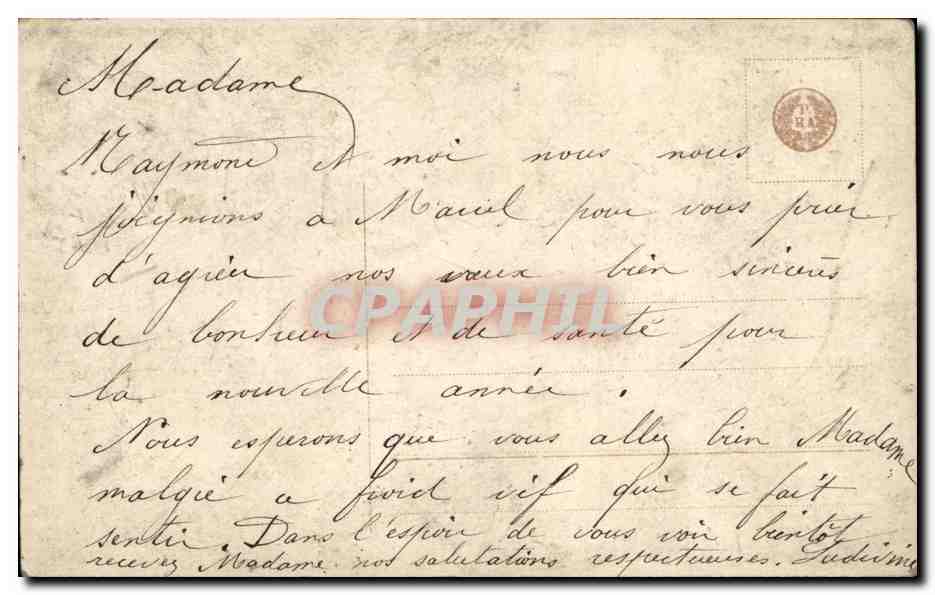 Madame
P.
RA
Raymond et moi nous nous
joignions a Marcel pour vous prier
d'agréer nos vœux bien sincères
CPAPHIL
de bonheur et de santé pour
la nouvelle année.
Nous esperons que vous allez bien Madame
malgré ce froid vif qui se fait
sentir. Dans l'espoir de vous voir bientôt
recevez Madame nos salutations respectueuses. Ludivine